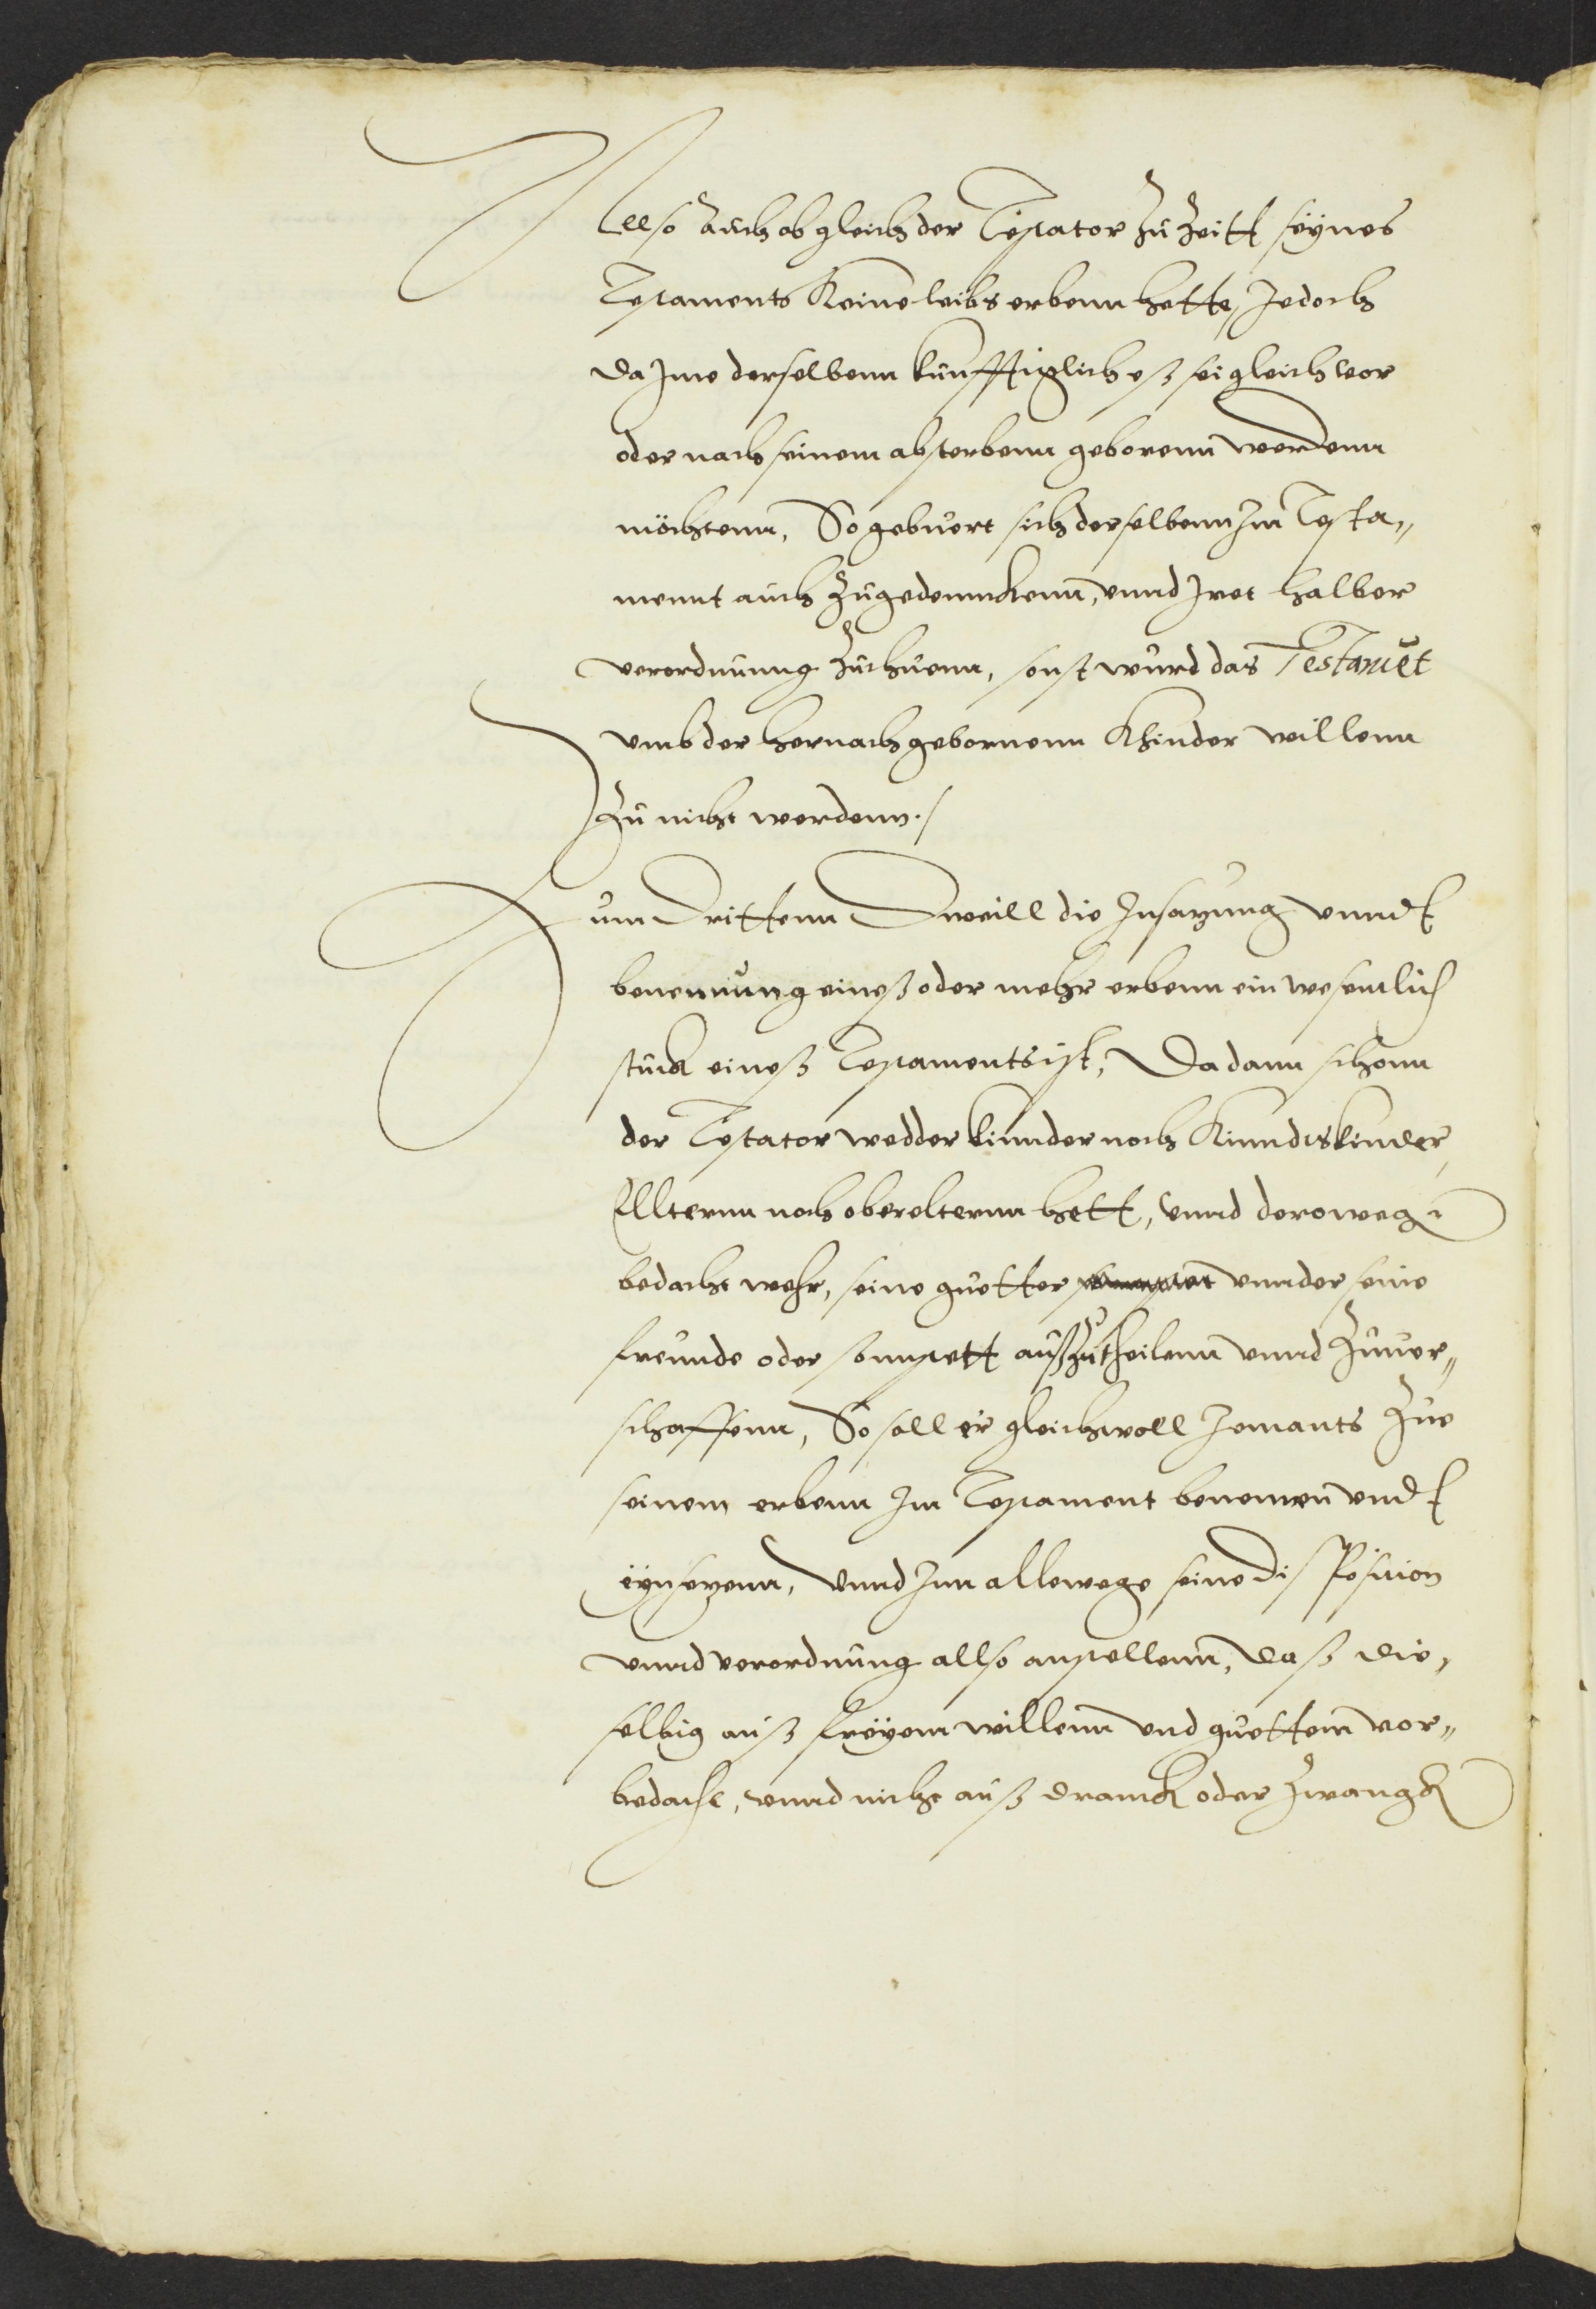 Allso auch ob gleich der Testator zu Zeitt seÿnes
Testaments Keine leibs erbenn hette, Jedoch
da Jme derselbenn kunfftiglich eß sei gleich vor
oder nach seinem absterbenn geborenn werdenn
möchtenn, So gebuert sich derselbenn Jm Testa„
mennt auch zugedennckenn, unnd Jret halber
verordnung zuthuenn, sonst wurd das Testamēt
umb der hernach gebornenn Khinder willenn
zu nicht werdenn./
Zum Drittenn Dweill die Insazung unnd
benennung eineß oder mehr erbenn ein wesentlich
stuck eineß Testaments ist, Da dann schonn
der Testator wedder kinnder noch Kinndtskinder,
Ellternn noch oberelternn hett, unnd deroweg
bedacht wehr, seine guetter unnder seine
freunde oder sonnstett außzutheilenn unnd zuuer„
schaffenn, So soll er gleichwoll Jemants zue
seinem erbenn Im Testament benemen und
eÿnsezenn, unnd Jnn allewege seine Disposition
unnd verordnung allso anstellenn, daß die„
selbig auß freÿem willenn und guettem vor„
bedacht, unnd nicht auß dranck oder zwangk